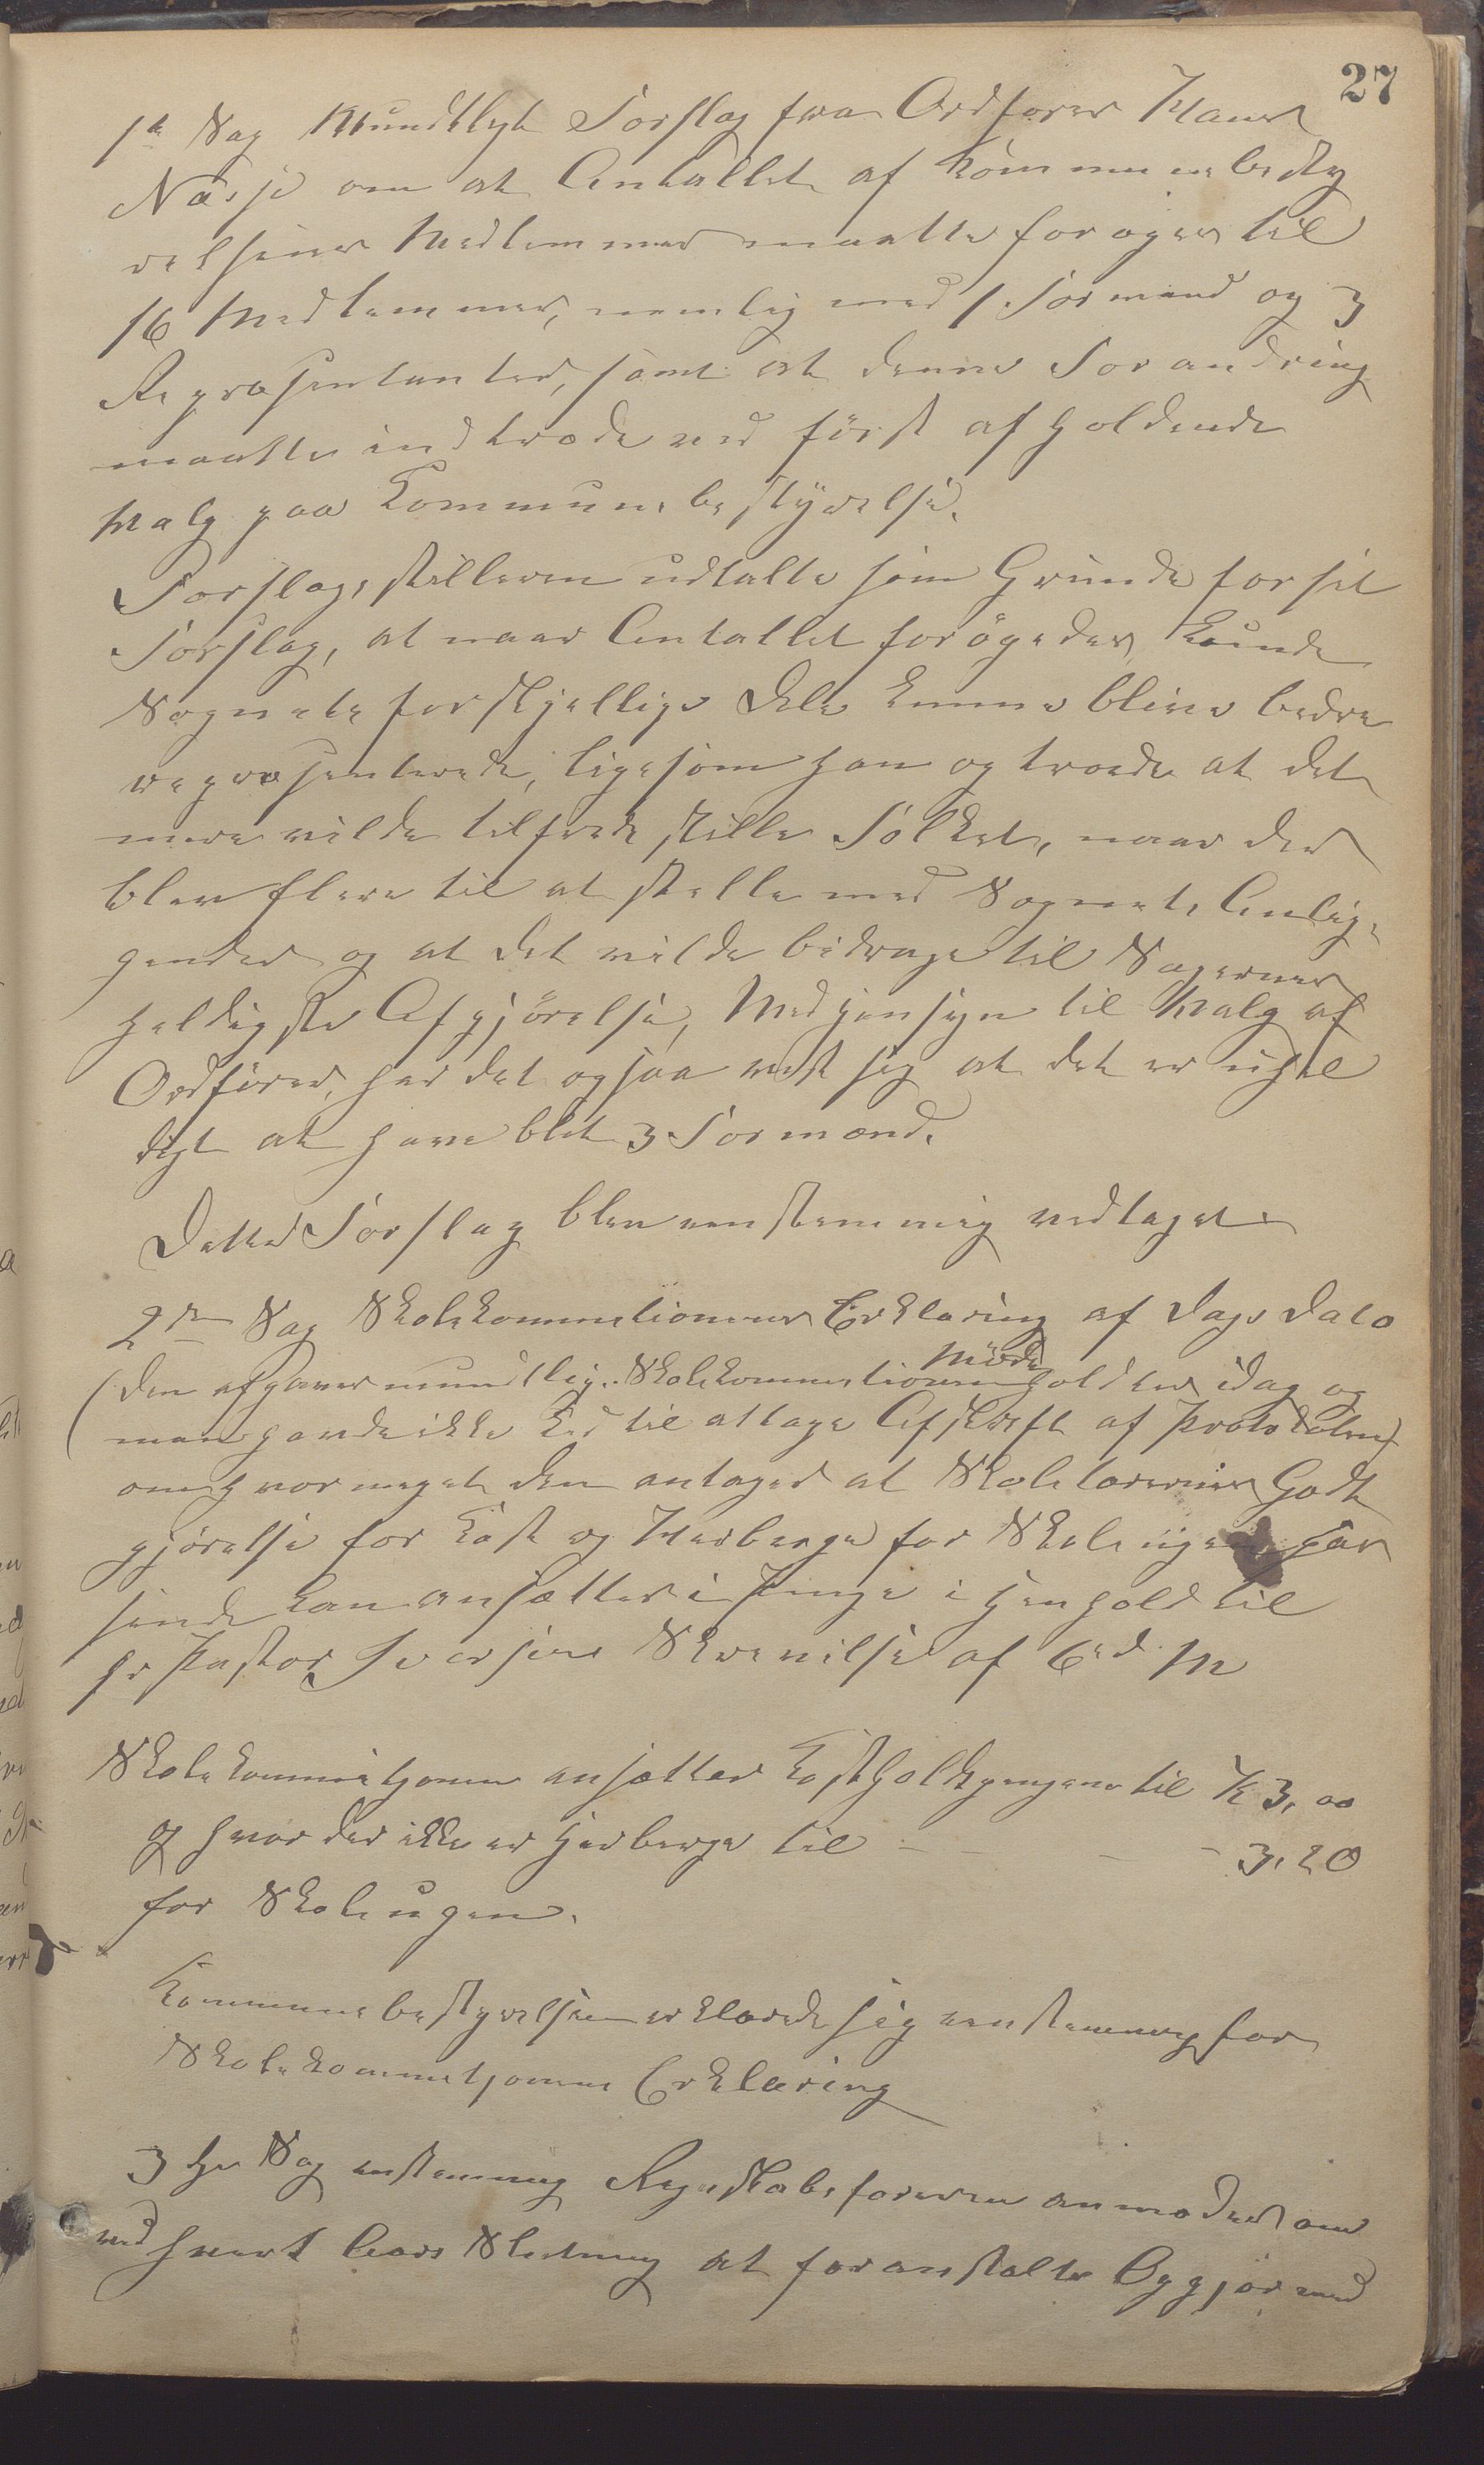 27
1te Sag Mundtligt Forslag fra Ordfører Hans
Næsje om at Antallet af Kommunebesty
relsens Medlemmer maatte foröges til
16 Medlemmer, nemlig med 1 Formand og 3
Repræsentanter, samt at denne Forandring
maatte indtræde ved först afholdende
Valg paa Kommunebestyrelse.
Forslagsstilleren udtalte som Grunde for sit
Forslag, at naar Antallet forögedes, kunde
Sognets forskjellige Dele kunne blive bedre
repræsenterede, ligesom han og troede at det
mere vilde tilfredsstille Folket, naar der
blev flere til at stelle med Sognets Anlig-
gender og at det vilde bidrage til Sagernes
heldigste Afgjörelse, Med Hensyn til Valg af
Ordförer, har det ogsaa vist sig at det er uhel
digt at have blot 3 Formænd.
Dette Forslag blev eenstemmig vedtaget.
2den Sag Skolekommissionens Erklæring af Dags Dato
Möde
(den afgaves mundtlig. Skolekommissionen holdtes idag og
man havde ikke Tid til at tage Afskrift af Protokolen)
om hvor meget den antager at Skolelærernes Godt
gjörelse for Kost og Herberge for Skoleugen
kan ansættes i Penge i Henhold til
Hr Pastor Iversens Skrivelse af 6te d. M
Skolekommissionen ansætter Kostholdspengene til K 3,00
og hvor der ikke er Herberge til - - - - 3,20
for Skoleugen.
Kommunebestyrelsen erklærede sig eenstemmig for
Skolekommissionens Erklæring
3die Sag enstemmig Regnskabsföreren anmodes om
ved hvert Aars Slutning at foranstalte Opgjör med